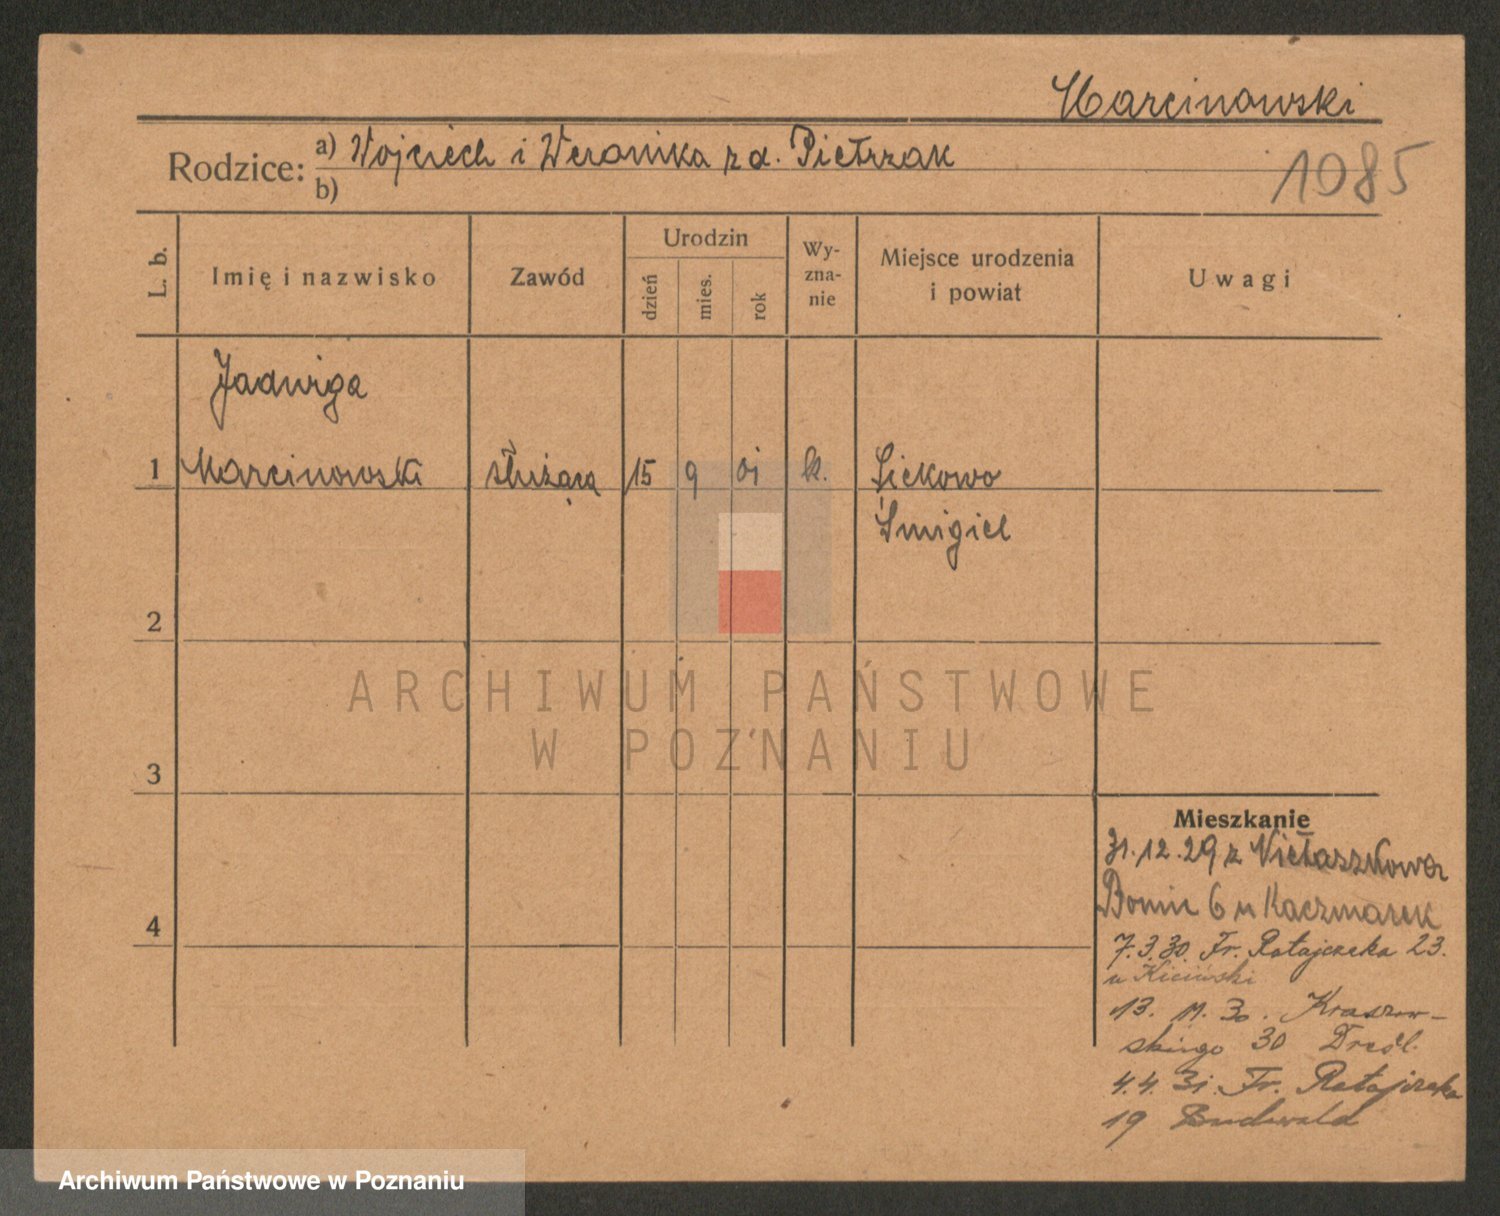 Marcinowski
Rodzice: a) Wojciech i Weronika z d. Pietrzak
b)
1085
L. b.
Imię i nazwisko
Zawód
Urodzin
dzień
mies.
rok
Wy-
zna-
nie
Miejsce urodzenia
i powiat
Uwagi
Jadwiga
1 Marcinowska służąca 15 9 01 k. Siekowo
Śmigiel
2
ARCHIWUM PAŃSTWOWE
W POZNANIU
3
Mieszkanie
31.12.29 z
6 u Kaczmarek
4
7.3.30. Fr. Ratajczaka 23.
u Kiciński
13. 11. 30. Kraszew-
skiego 30
4.4. 31. Fr. Ratajczaka
19 Buchwald
Archiwum Państwowe w Poznaniu